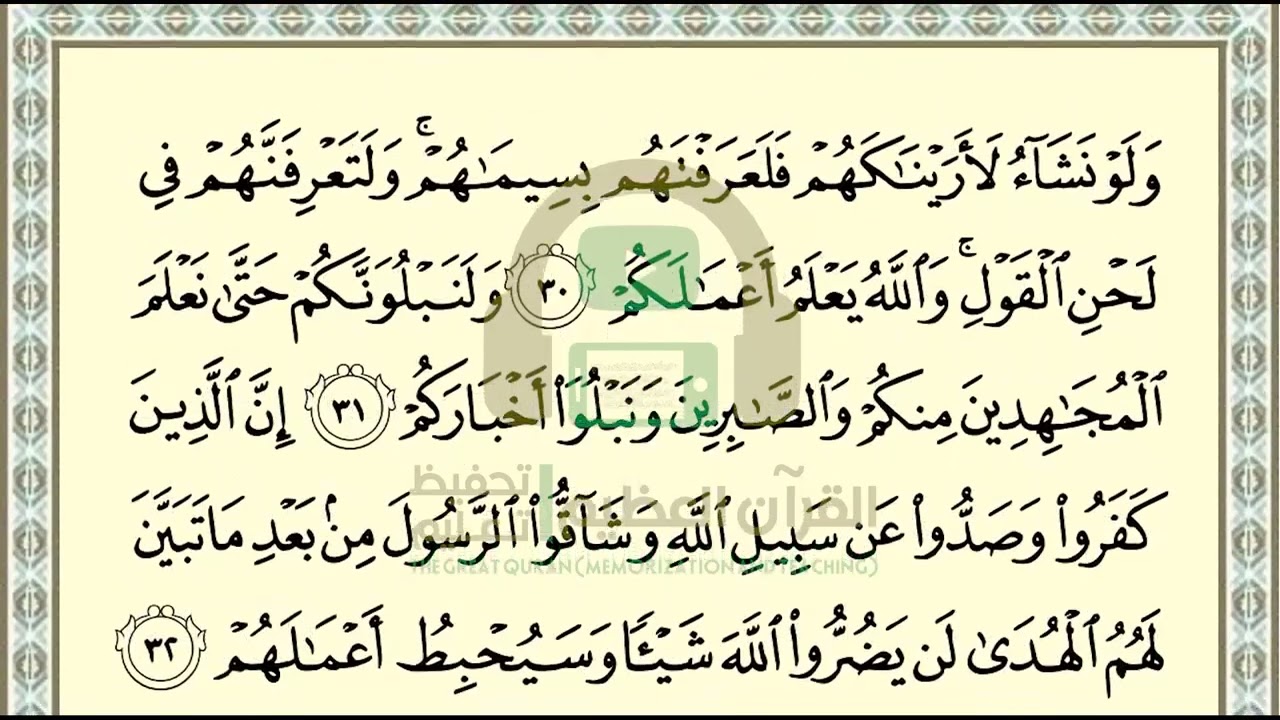 وَلَوْ نَشَآءُ لَأَرَيْنَٰكَهُمْ فَلَعَرَفْتَهُم بِسِيمَٰهُمْ ۚ وَلَتَعْرِفَنَّهُمْ فِى
لَحْنِ ٱلْقَوْلِ ۚ وَٱللَّهُ يَعْلَمُ أَعْمَٰلَكُمْ ٣٠ وَلَنَبْلُوَنَّكُمْ حَتَّىٰ نَعْلَمَ
ٱلْمُجَٰهِدِينَ مِنكُمْ وَٱلصَّٰبِرِينَ وَنَبْلُوَا۟ أَخْبَارَكُمْ ٣١ إِنَّ ٱلَّذِينَ
القرآن العظيم تحفيظ وتعليم
كَفَرُوا۟ وَصَدُّوا۟ عَن سَبِيلِ ٱللَّهِ وَشَآقُّوا۟ ٱلرَّسُولَ مِنۢ بَعْدِ مَا تَبَيَّنَ
THE GREAT QURAN (MEMORIZATION AND TEACHING)
لَهُمُ ٱلْهُدَىٰ لَن يَضُرُّوا۟ ٱللَّهَ شَيْـًٔا وَسَيُحْبِطُ أَعْمَٰلَهُمْ ٣٢